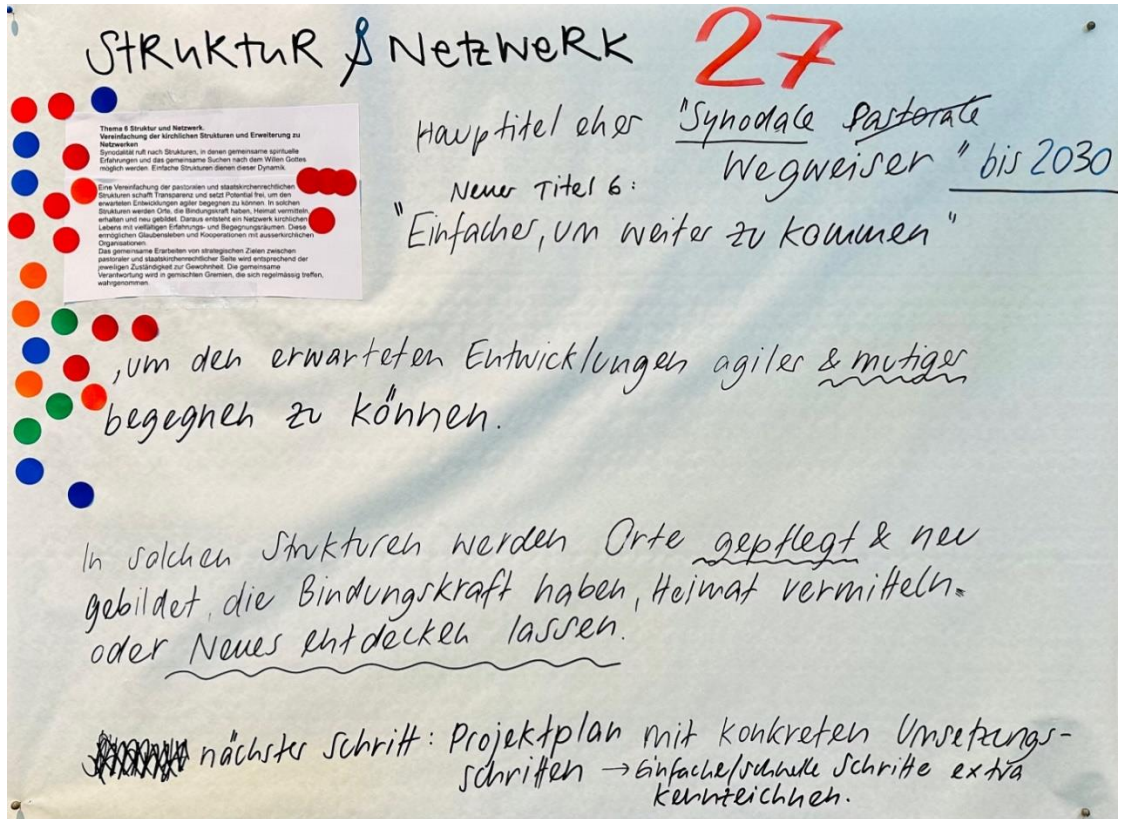 StRuktuR & NetzweRk 27
Thema 6 Struktur und Netzwerk.
Vereinfachung der kirchlichen Strukturen und Erweiterung zu
Netzwerken
Synodalität ruft nach Strukturen, in denen gemeinsame spirituelle
Erfahrungen und das gemeinsame Suchen nach dem Willen Gottes
möglich werden. Einfache Strukturen dienen dieser Dynamik.
Eine Vereinfachung der pastoralen und staatskirchenrechtlichen
Strukturen schafft Transparenz und setzt Potential frei, um den
erwarteten Entwicklungen agiler begegnen zu können. In solchen
Strukturen werden Orte, die Bindungskraft haben, Heimat vermitteln
erhalten und neu gebildet. Daraus entsteht ein Netzwerk kirchlichen
Lebens mit vielfältigen Erfahrungs- und Begegnungsräumen. Diese
ermöglichen Glaubensleben und Kooperationen mit ausserkirchlichen
Organisationen.
Das gemeinsame Erarbeiten von strategischen Zielen zwischen
pastoraler und staatskirchenrechtlicher Seite wird entsprechend der
jeweiligen Zuständigkeit zur Gewohnheit. Die gemeinsame
Verantwortung wird in gemischten Gremien, die sich regelmässig treffen,
wahrgenommen.
Hauptitel eher "Synodale Pastorale
Wegweiser" bis 2030
Neuer Titel 6:
"Einfacher, um weiter zu kommen"
, um den erwarteten Entwicklungen agiler & mutiger
begegnen zu können.
In solchen Strukturen werden Orte gepflegt & neu
gebildet, die Bindungskraft haben, Heimat vermitteln.
oder Neues entdecken lassen.
nächster Schritt: Projektplan mit konkreten Umsetzungs-
schritten → Einfache/schnelle Schritte extra
kennzeichnen.